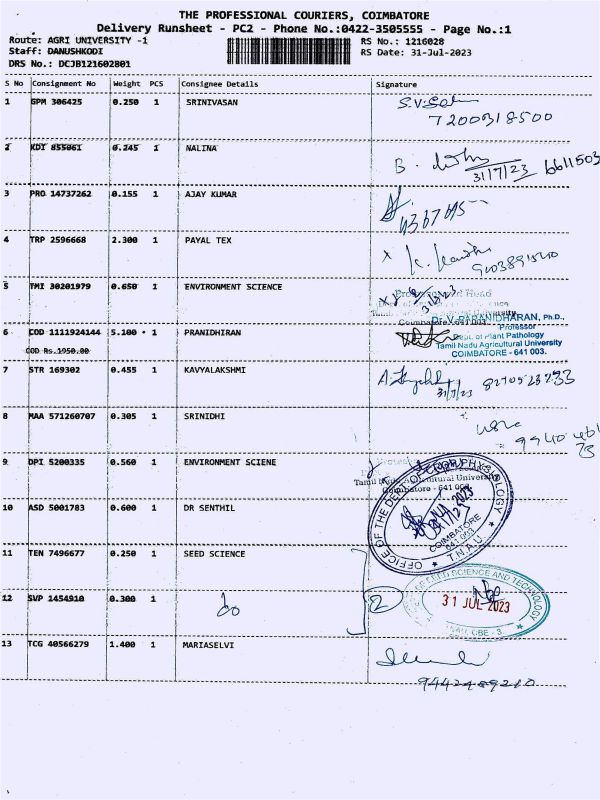 THE PROFESSIONAL COURIERS, COIMBATORE
Delivery Runsheet - PC2 - Phone No.:0422-3505555 - Page No.:1
Route: AGRI UNIVERSITY -1
RS No.: 1216028
Staff: DANUSHKODI
RS Date: 31-Jul-2023
DRS No.: DCJB121602801
S No Consignment No Weight PCS Consignee Details Signature
1 GPM 306425 0.250 1 SRINIVASAN
7200318500
2 KDI 855061 0.245 1 NALINA
B.
31/7/23
3 PRO 14737262 0.155 1 AJAY KUMAR
4 TRP 2596668 2.300 1 PAYAL TEX
5 TMI 30201979 0.650 1 ENVIRONMENT SCIENCE
Professor and Head
Coimbatore - 641 003
6 COD 1111924144 5.100 1 PRANIDHIRAN
COD Rs.1950.00
Dr. V. PARANIDHARAN, Ph.D.,
Professor
Dept. of Plant Pathology
Tamil Nadu Agricultural University
COIMBATORE - 641 003.
7 STR 169302 0.455 1 KAVYALAKSHMI
31/7/23
8 MAA 571260707 0.305 1 SRINIDHI
9 DPI 5200335 0.560 1 ENVIRONMENT SCIENE
Tamil Nadu Agricultural University
Coimbatore - 641 003
10 ASD 5001783 0.600 1 DR SENTHIL
OFFICE OF THE DEPT. OF CROP PHYSIOLOGY
COIMBATORE
641 003
T.N.A.U
11 TEN 7496677 0.250 1 SEED SCIENCE
12 SVP 1454910 0.300 1 do
2
SEED SCIENCE AND TECHNOLOGY
31 JUL 2023
TNAU, CBE - 3
13 TCG 40566279 1.400 1 MARIASELVI
9442489210